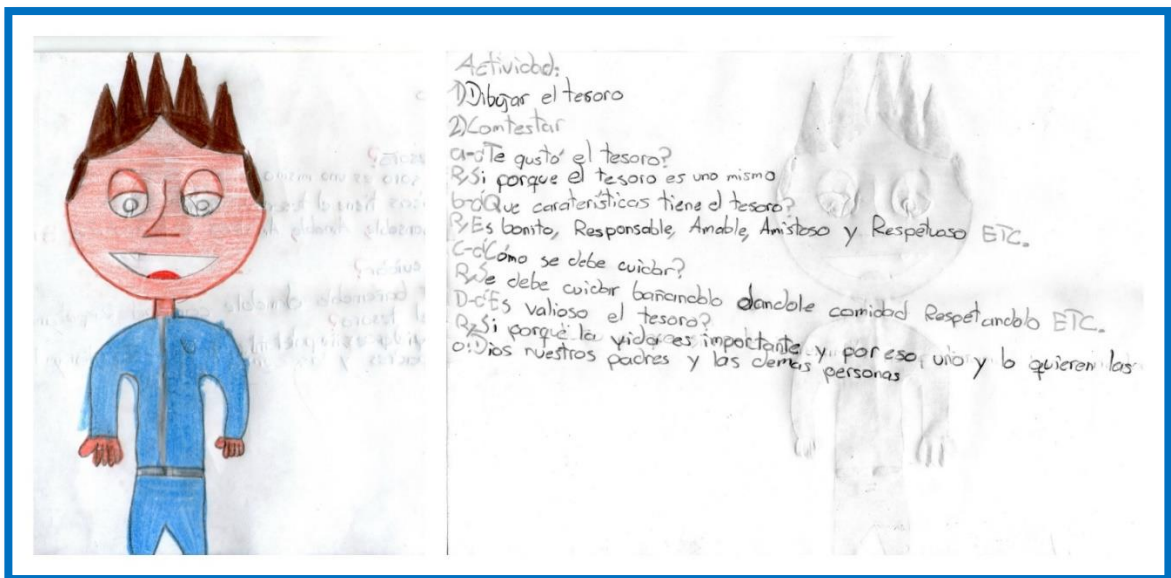 Actividad:
1) Dibujar el tesoro
2) Contestar
a-¿Te gustó el tesoro?
R/Si porque el tesoro es uno mismo
b-¿Que caraterísticas tiene el tesoro?
R/Es bonito, Responsable, Amable, Amistoso y Respetuoso ETC.
C-¿Cómo se debe cuidar?
R/Se debe cuidar bañandolo dandole comidad Respetandolo ETC.
D-¿Es valioso el tesoro?
R/Si porque la vida es importante y por eso uno y lo quieren las
Dios nuestros padres y las demas personas